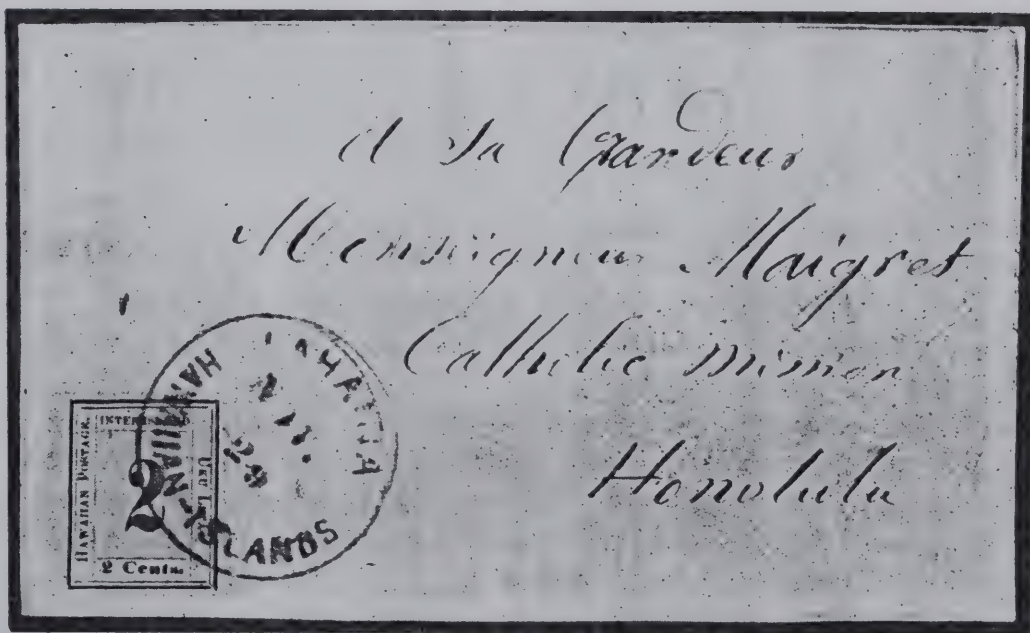 A Sa Grandeur
Monseigneur Maigret
Catholic mission
Honolulu
LAHAINA
HAWAIIAN ISLANDS
28
HAWAIIAN POSTAGE.
2
2 Cents.